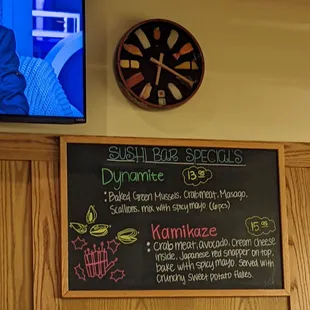 SUSHI BAR SPECIAL'S
Dynamite 13.95
: Baked Green Mussels, Crabmeat, Masago,
Scallions, mix with spicy mayo (6pcs)
Kamikaze 15.95
: Crab meat, avocado, Cream Cheese
inside, Japanese red snapper on top,
bake with spicy mayo. Served with
Crunchy Sweet Potato flakes.